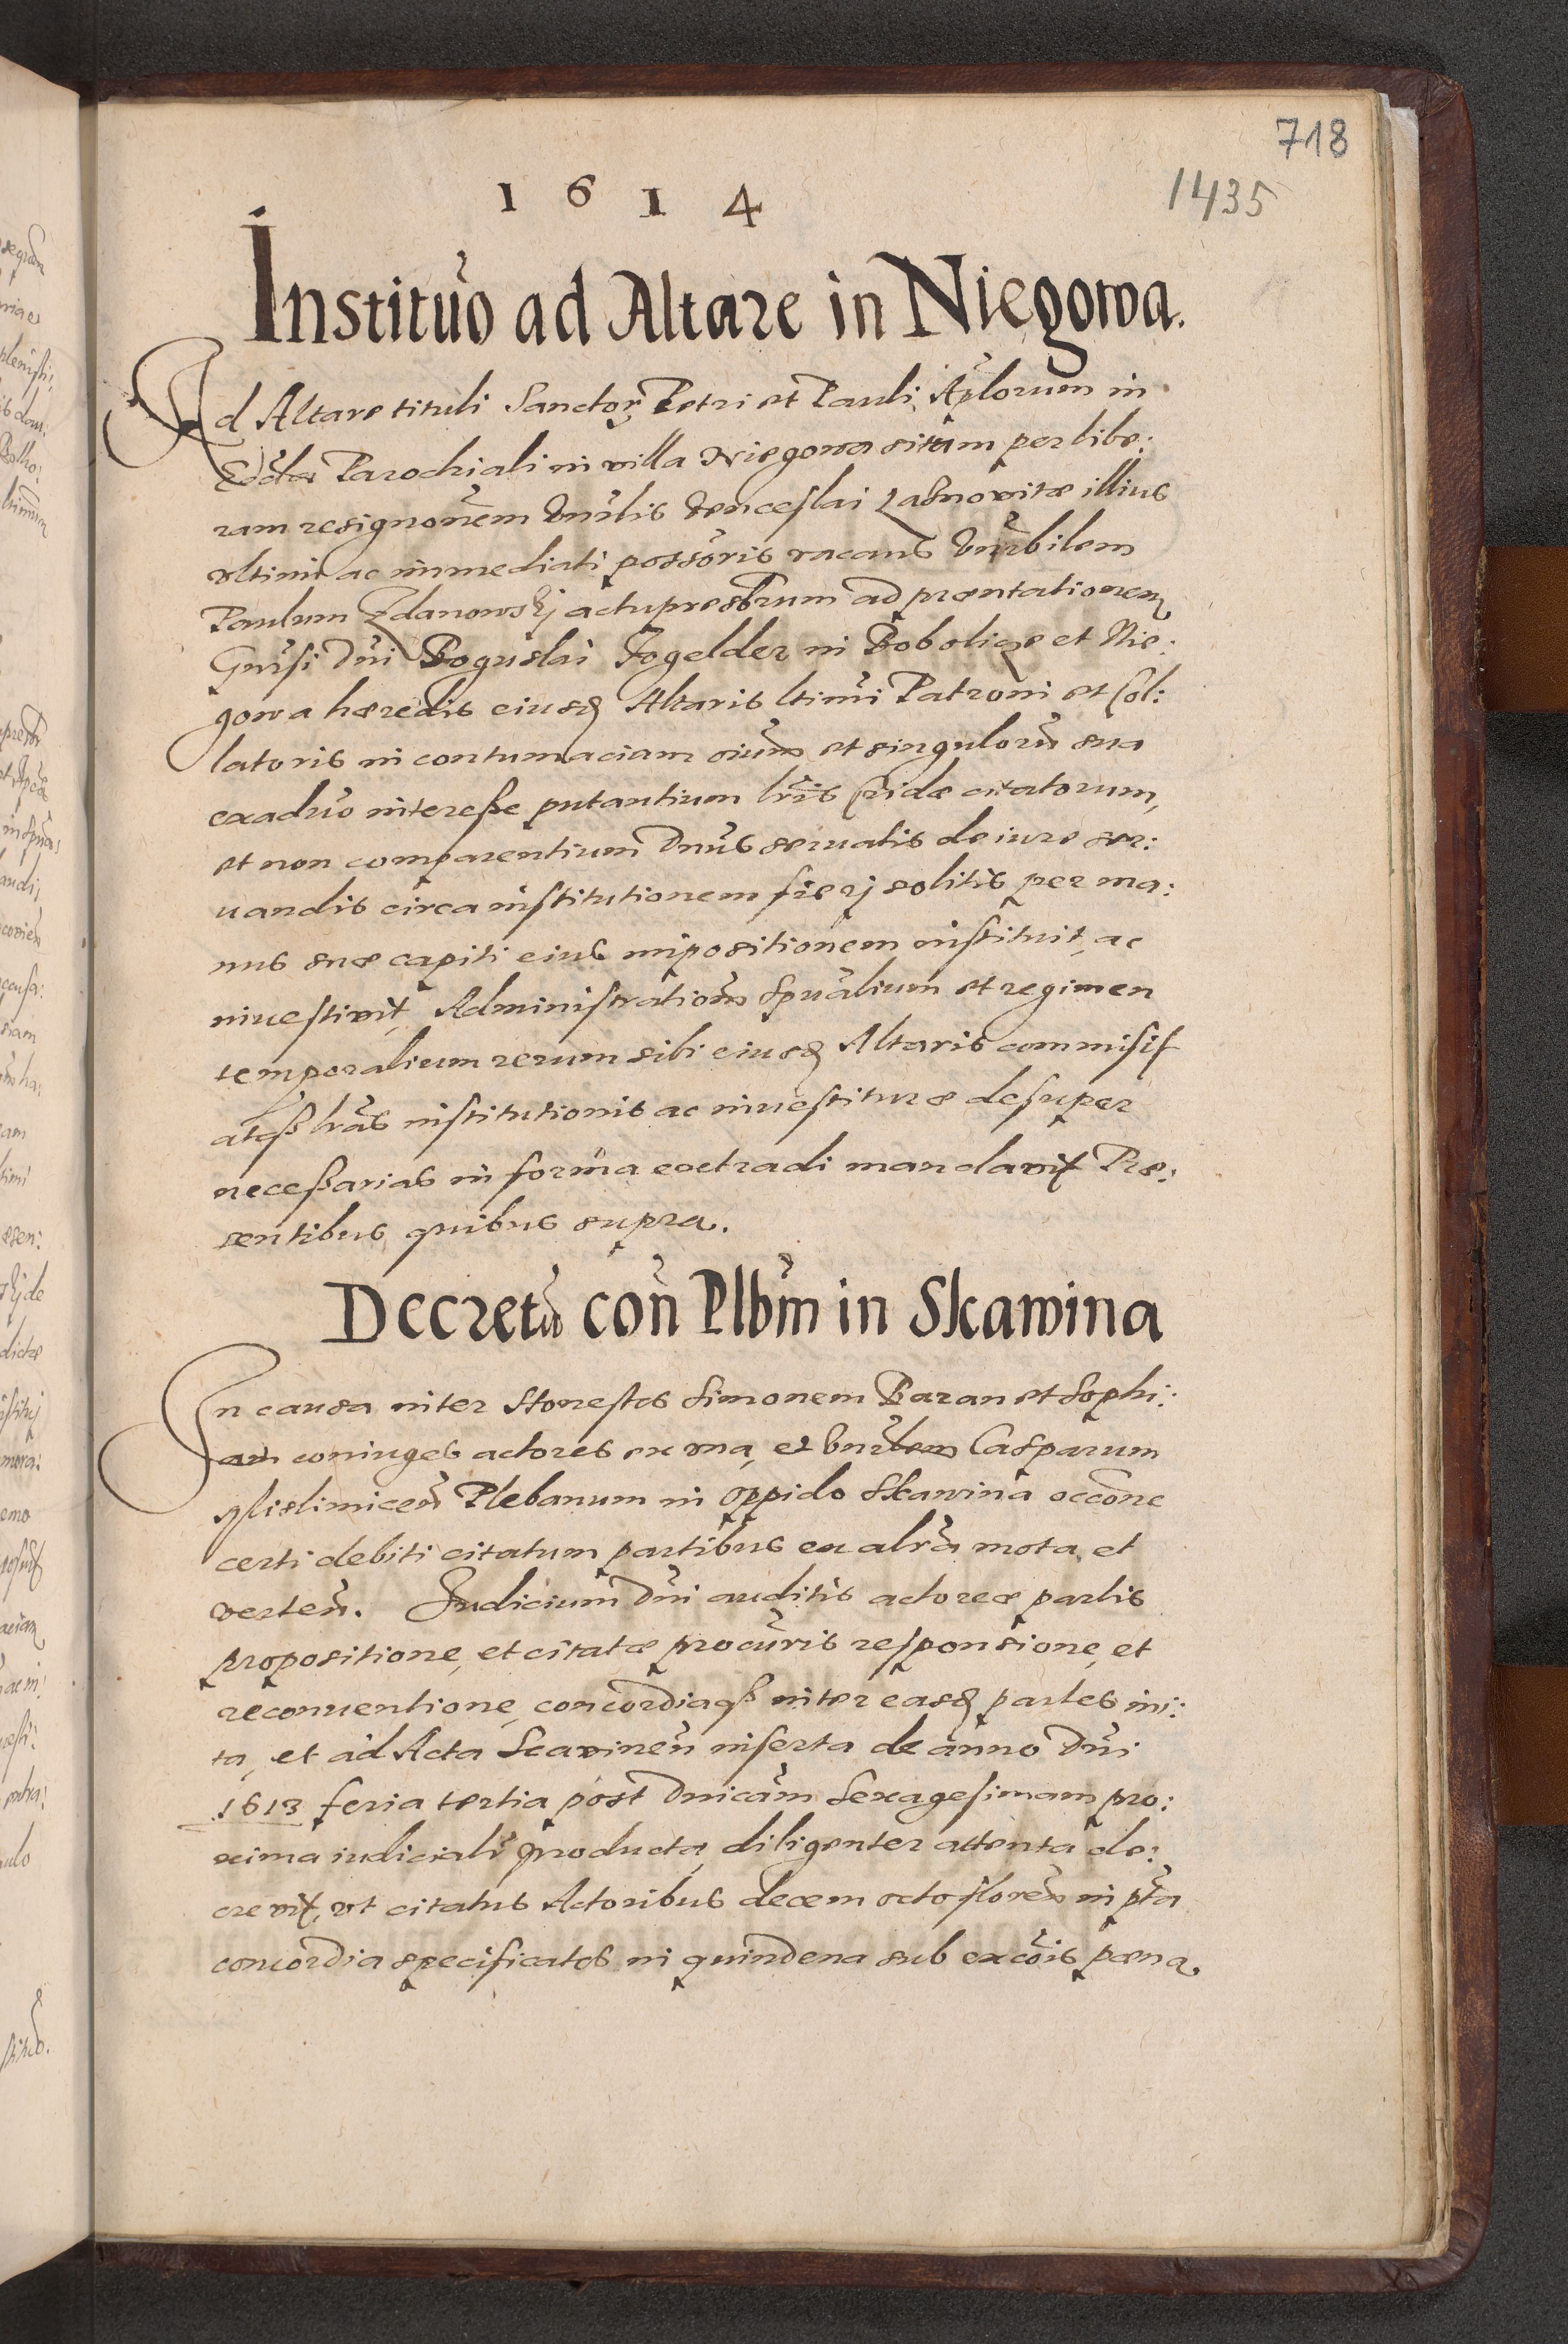 718
1435
1 6 1 4
Institũo ad Altare in Niegowa.
Ad Altare tituli Sanctor Petri et Pauli Aplorum in
Eccla Parochiali in villa Niegowa situm per libe:
ram resignoñem Vnrlis Venceslai illius
vltimi ac immediati possoris vacans Vnrbilem
Paulum Zdanowskj actu presbrum ad præntationem
Gnrsi Dni Boguslai in Bobolicze et Nie:
gowa hæredis eiusd Altaris ltimi Patroni et Col:
latoris in contumaciam oium et singulorũ sua
exaduo interesse putantium lris Cridæ citatorum,
et non comparentium Dnus seruatis de iure ser:
uandis circa institutionem fierj solitis per ma:
nus suæ capiti eius impositionem instituit, ac
inuestiuit, Administrationem Spualium et regimen
temporalium rerum sibi eiusd Altaris commisit
lras institutionis ac inuestituræ desuper
necessarias in forma extradi mandauit Præ:
sentibus quibus supra.
Decretũ con Plbm in Skawina
In causa inter Honestos Simonem Baran et Sophi:
am coniuges actores ex vna, et Vnrlem Casparum
Plebanum in oppido Skawina occone
certi debiti citatum partibus ex alra mota et
verten. Iudicium Dni auditis actoreæ partis
propositione, et citatæ procuris responsione, et
reconuentione, concordiaq inter easd partes ini:
ta, et ad Acta Scavinen inserta de anno Dni
1613 feria tertia post Dnicam Sexagesimam pro:
xima iudiciali producta, diligenter attenta de:
creuit, vt citatus Actoribus decem octo floren in pta
concordia specificatos in quindena sub excois pæna